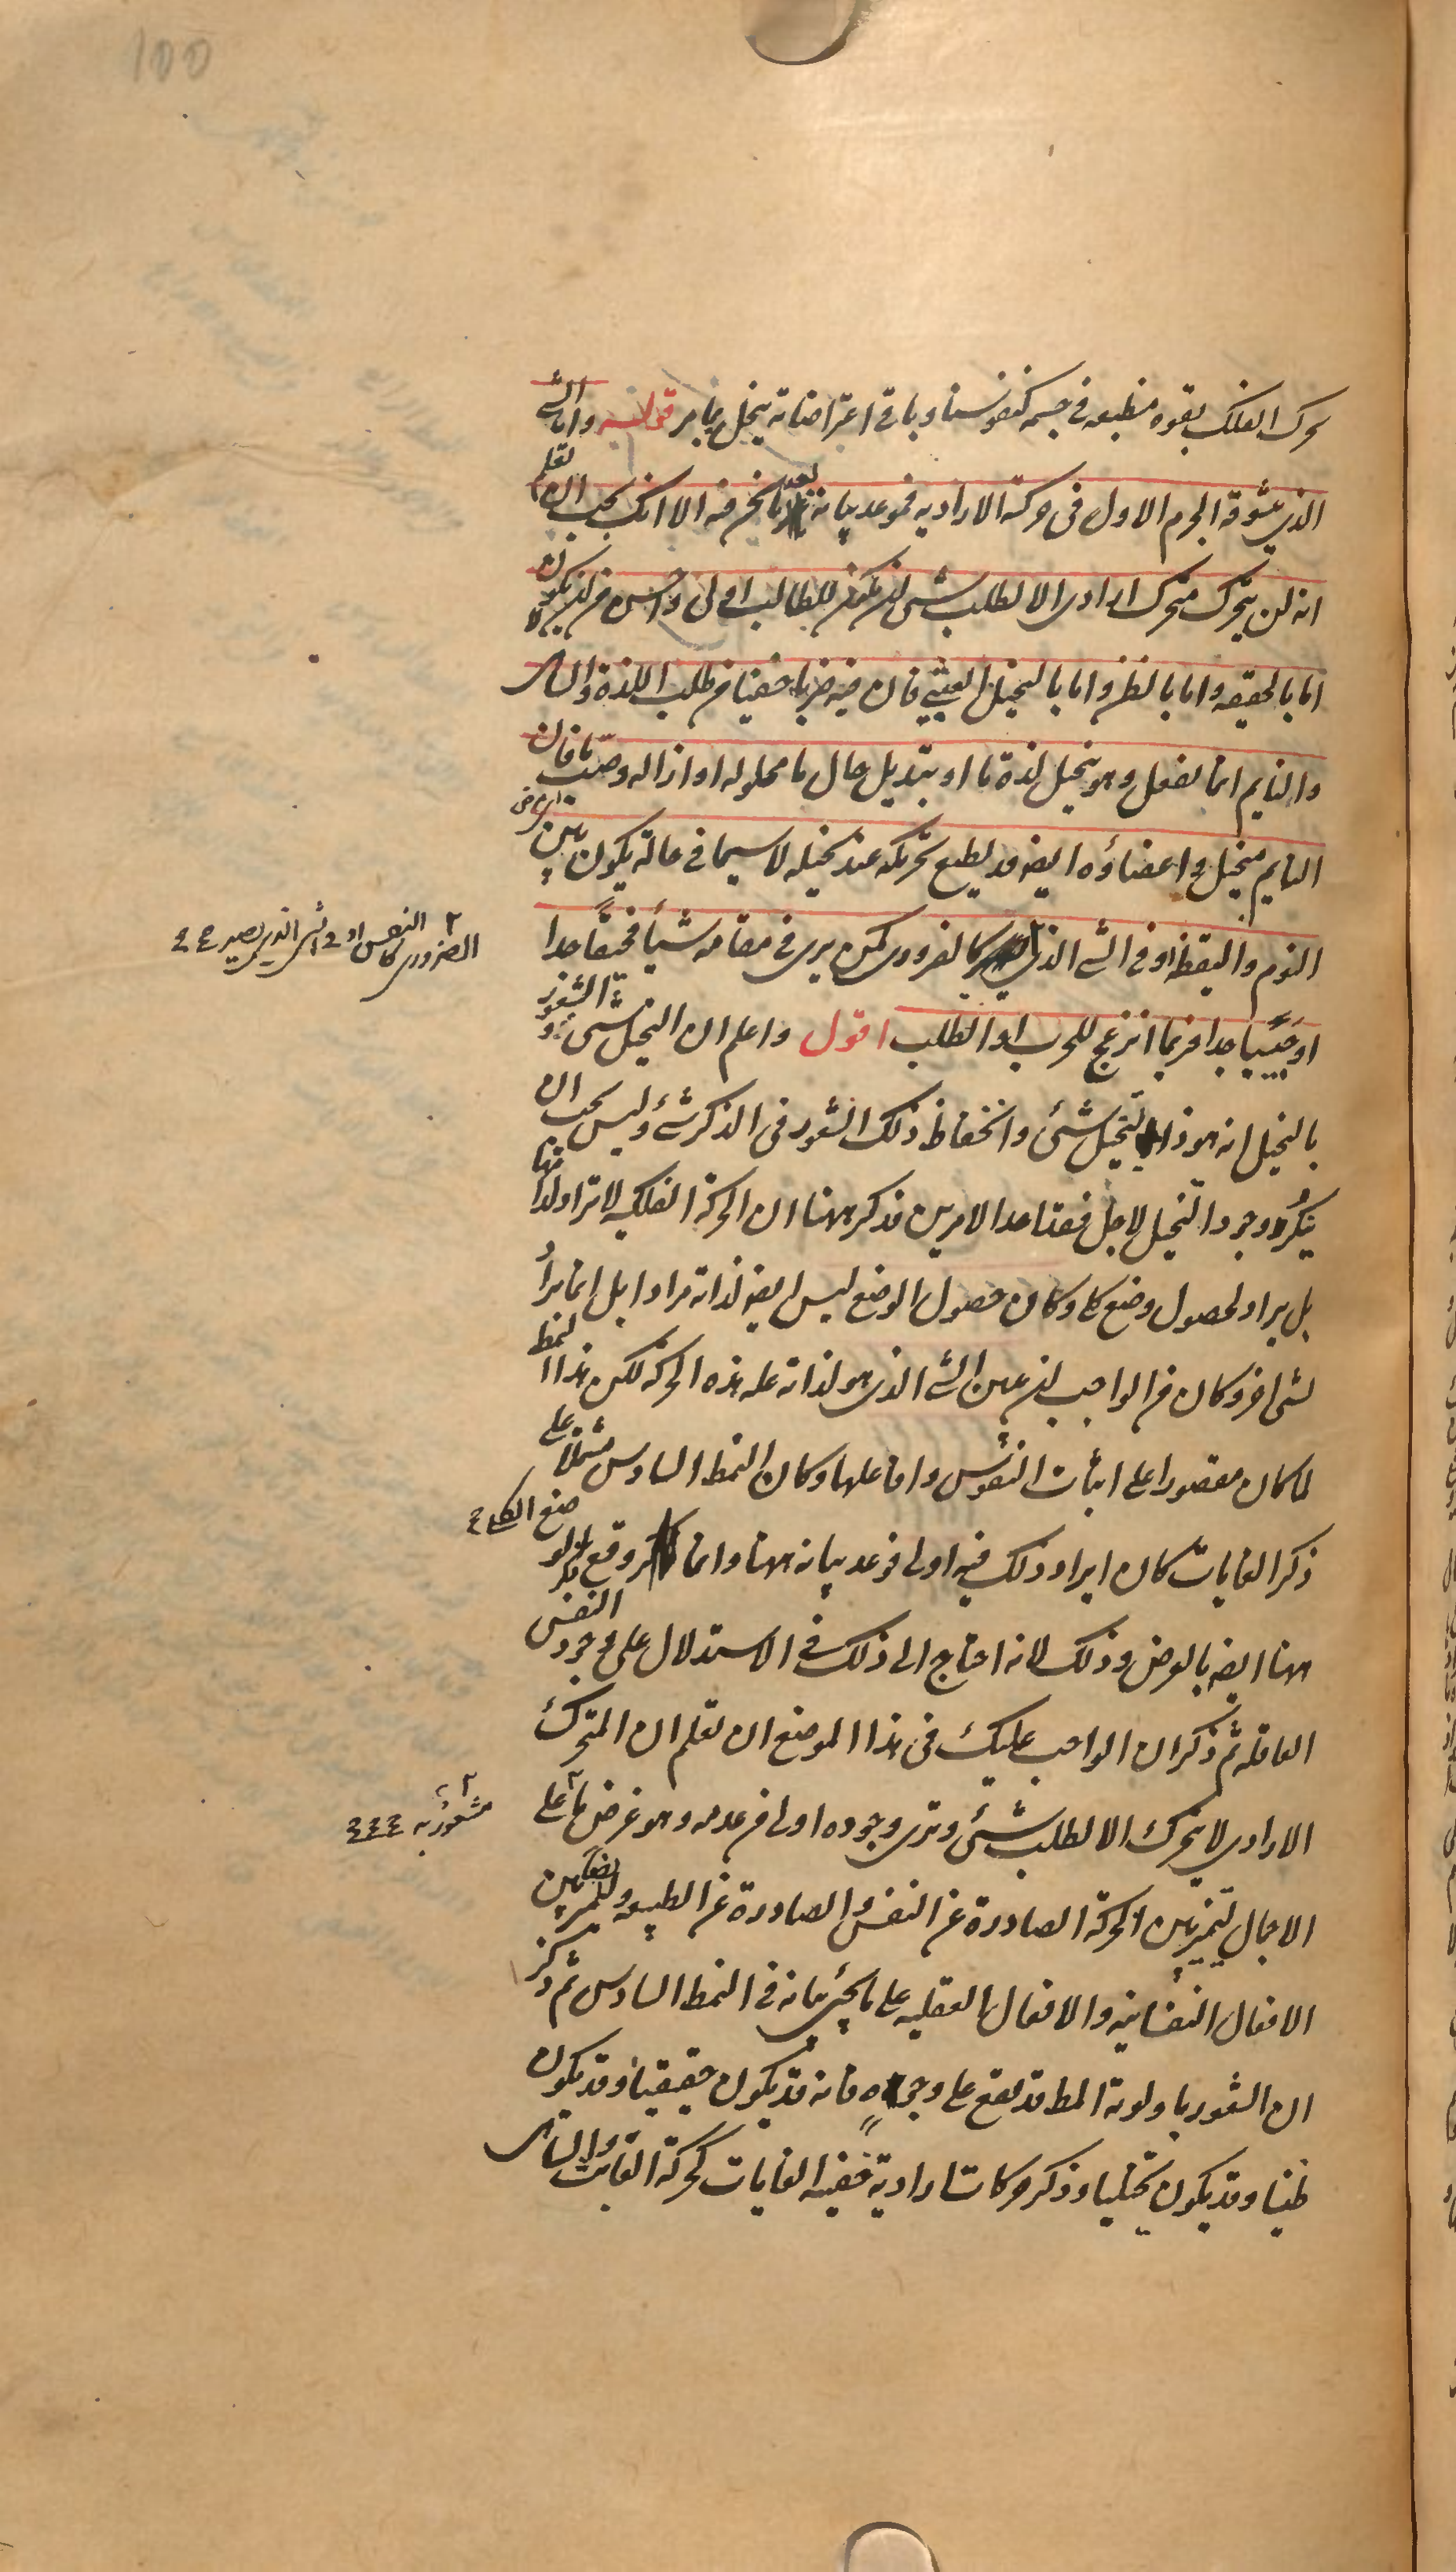 100
تحرك الفلك بقوه منطبعه في جسمه كنفوسنا وباقى اعتراضاته ينحل بما مر قوله واما الشئ
الذي يشوقه الجرم الاول فى حركته الاراديه فموعد بيانه بعد ما نحن فيه الا انك يجب ان تعلم
انه لن يتحرك متحرك ارادى الا لطلب شئ ان يكون للطالب اولى واحسن من ان لا يكون
اما بالحقيقه واما بالظن واما بالتخيل العبثي فان فيه ضربا خفيا من طلب اللذة والساهى
والنايم انما يفعل وهو يتخيل لذة ما او تبديل حال ما مملوله او ازاله وصب ما فان
النايم متخيل واعضاؤه ايضه قد يطيع تحريكه عند تخيله لاسيما في حالة يكون بين
النوم واليقظه او فى الشئ الذي كالضرورى كمن يرى في مقامه شيأ مخيفا جدا
او حبيبا جدا فربما انزعج للهرب او الطلب اقول واعلم ان التخيل شئ والشعور
بالتخيل انه هو ذا يتخيل شئ وانحفاظ ذلك الشعور فى الذكر شئ وليس يجب ان
ينكر وجود التخيل لاجل فقد احد الامرين قد ذكر ههنا ان الحركة الفلكيه لا تراد لذاتها
بل يراد لحصول وضع كلى وكان حصول الوضع ليس ايضه لذاته مرادا بل انما يراد
لشئ اخر وكان من الواجب ان يبين الشئ الذى هو لذاته علة هذه الحركه لكن هذا النمط
لما كان مقصورا على اثبات النفوس وافاعلها وكان النمط السادس مشتملا على
ذكر الغايات كان ايراد ذلك فيه اولى فوعد بيانه هناك وانما وقع ذكر الوضع الكلى
ههنا ايضه بالعرض وذلك لانه احتاج الى ذلك في الاستدلال على وجود النفس
العاقله ثم ذكر ان الواجب عليك فى هذا الموضع ان تعلم ان المتحرك
الارادى لا يتحرك الا لطلب شئ وترى وجوده اولى من عدمه وهو غرض ما على
الاجمال ليتميز بين الحركة الصادرة عن النفس والصادرة عن الطبيعه وللتمييز ايضا بين
الافعال النفسانيه والافعال العقليه على ما يجئ بيانه فى النمط السادس ثم ذكر
ان الشعور باولويه المط قد يقع على وجوه فانه قد يكون حقيقيا وقد يكون
ظنيا وقد يكون تخيليا وذكر حركات ارادية خفيه الغايات كحركة العابث والساهى
النفس او فى الشئ الذى يصير
كالضرورى
مشعور به